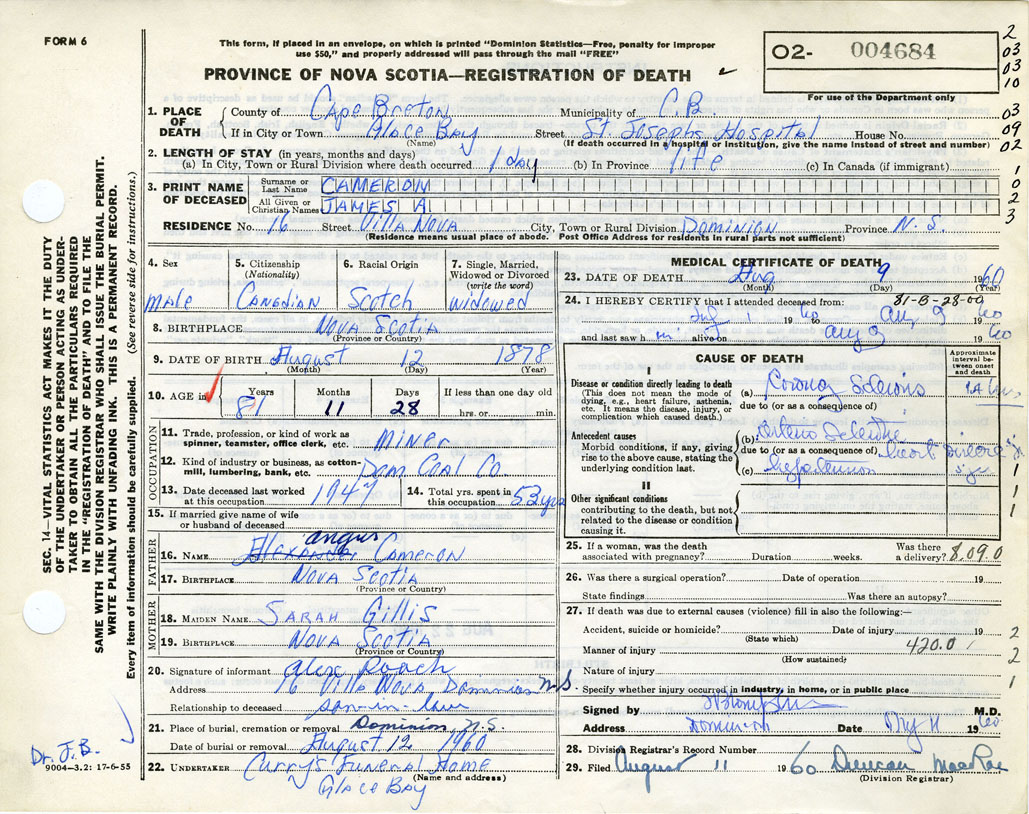 FORM 6
This form, if placed in an envelope, on which is printed "Dominion Statistics—Free, penalty for improper
use $50," and properly addressed will pass through the mail "FREE"
PROVINCE OF NOVA SCOTIA—REGISTRATION OF DEATH
O2- 004684
For use of the Department only
2
03
03
10
03
09
02
1
0
2
3
1. PLACE OF DEATH
County of Cape Breton Municipality of C.B.
If in City or Town Glace Bay Street St Josephs Hospital House No.
(Name) (If death occurred in a hospital or institution, give the name instead of street and number)
2. LENGTH OF STAY (in years, months and days)
(a) In City, Town or Rural Division where death occurred 1 day (b) In Province life (c) In Canada (if immigrant)
3. PRINT NAME OF DECEASED
Surname or Last Name CAMERON
All Given or Christian Names JAMES A
RESIDENCE No. 16 Street Villa Nova City, Town or Rural Division DOMINION Province N.S.
(Residence means usual place of abode. Post Office Address for residents in rural parts not sufficient)
4. Sex
male
5. Citizenship
(Nationality)
Canadian
6. Racial Origin
Scotch
7. Single, Married,
Widowed or Divorced
(write the word)
widowed
8. BIRTHPLACE Nova Scotia
(Province or Country)
9. DATE OF BIRTH August 12 1878
(Month) (Day) (Year)
10. AGE in
Years Months Days If less than one day
81 11 28 hrs. or min.
OCCUPATION
11. Trade, profession, or kind of work as
spinner, teamster, office clerk, etc. Miner
12. Kind of industry or business, as cotton-
mill, lumbering, bank, etc. Dom Coal Co
13. Date deceased last worked
at this occupation 1947
14. Total yrs. spent in
this occupation 53 yrs
15. If married give name of wife
or husband of deceased
FATHER
angus
16. NAME Alexander Cameron
17. BIRTHPLACE Nova Scotia
(Province or Country)
MOTHER
18. MAIDEN NAME Sarah Gillis
19. BIRTHPLACE Nova Scotia
(Province or Country)
20. Signature of informant Alex Roach
Address 16 Villa Nova Dominion N.S.
Relationship to deceased son-in-law
21. Place of burial, cremation or removal Dominion N.S.
Date of burial or removal August 12 1960
22. UNDERTAKER Curry's Funeral Home
(Name and address)
Glace Bay
MEDICAL CERTIFICATE OF DEATH
23. DATE OF DEATH Aug 9 1960
(Month) (Day) (Year)
81-B-28-00
24. I HEREBY CERTIFY that I attended deceased from:
1 1960 to Aug 9 1960
and last saw h im alive on Aug 9 1960
CAUSE OF DEATH
Approximate
interval be-
tween onset
and death
I
Disease or condition directly leading to death
(This does not mean the mode of
dying, e.g., heart failure, asthenia,
etc. It means the disease, injury, or
complication which caused death.)
(a)
due to (or as a consequence of)
Antecedent causes
Morbid conditions, if any, giving
rise to the above cause, stating the
underlying condition last.
(b)
due to (or as a consequence of) heart disease
(c)
II
Other significant conditions
contributing to the death, but not
related to the disease or condition
causing it.
1
1
1
25. If a woman, was the death
associated with pregnancy? Duration weeks. Was there
a delivery? 8.09.0
26. Was there a surgical operation? Date of operation 19
State findings Was there an autopsy?
27. If death was due to external causes (violence) fill in also the following:—
Accident, suicide or homicide? Date of injury 19
(State which)
Manner of injury 420.0 1
(How sustained)
Nature of injury
Specify whether injury occurred in industry, in home, or in public place
2
2
1
Signed by M.D.
Address Dominion Date 11 1960
28. Division Registrar's Record Number
29. Filed August 11 1960 Duncan MacRae
(Division Registrar)
SEC. 14—VITAL STATISTICS ACT MAKES IT THE DUTY
OF THE UNDERTAKER OR PERSON ACTING AS UNDER-
TAKER TO OBTAIN ALL THE PARTICULARS REQUIRED
IN THE "REGISTRATION OF DEATH" AND TO FILE THE
SAME WITH THE DIVISION REGISTRAR WHO SHALL ISSUE THE BURIAL PERMIT.
WRITE PLAINLY WITH UNFADING INK. THIS IS A PERMANENT RECORD.
Every item of information should be carefully supplied. (See reverse side for instructions.)
Dr. J.B.
9004-3.2: 17-6-55